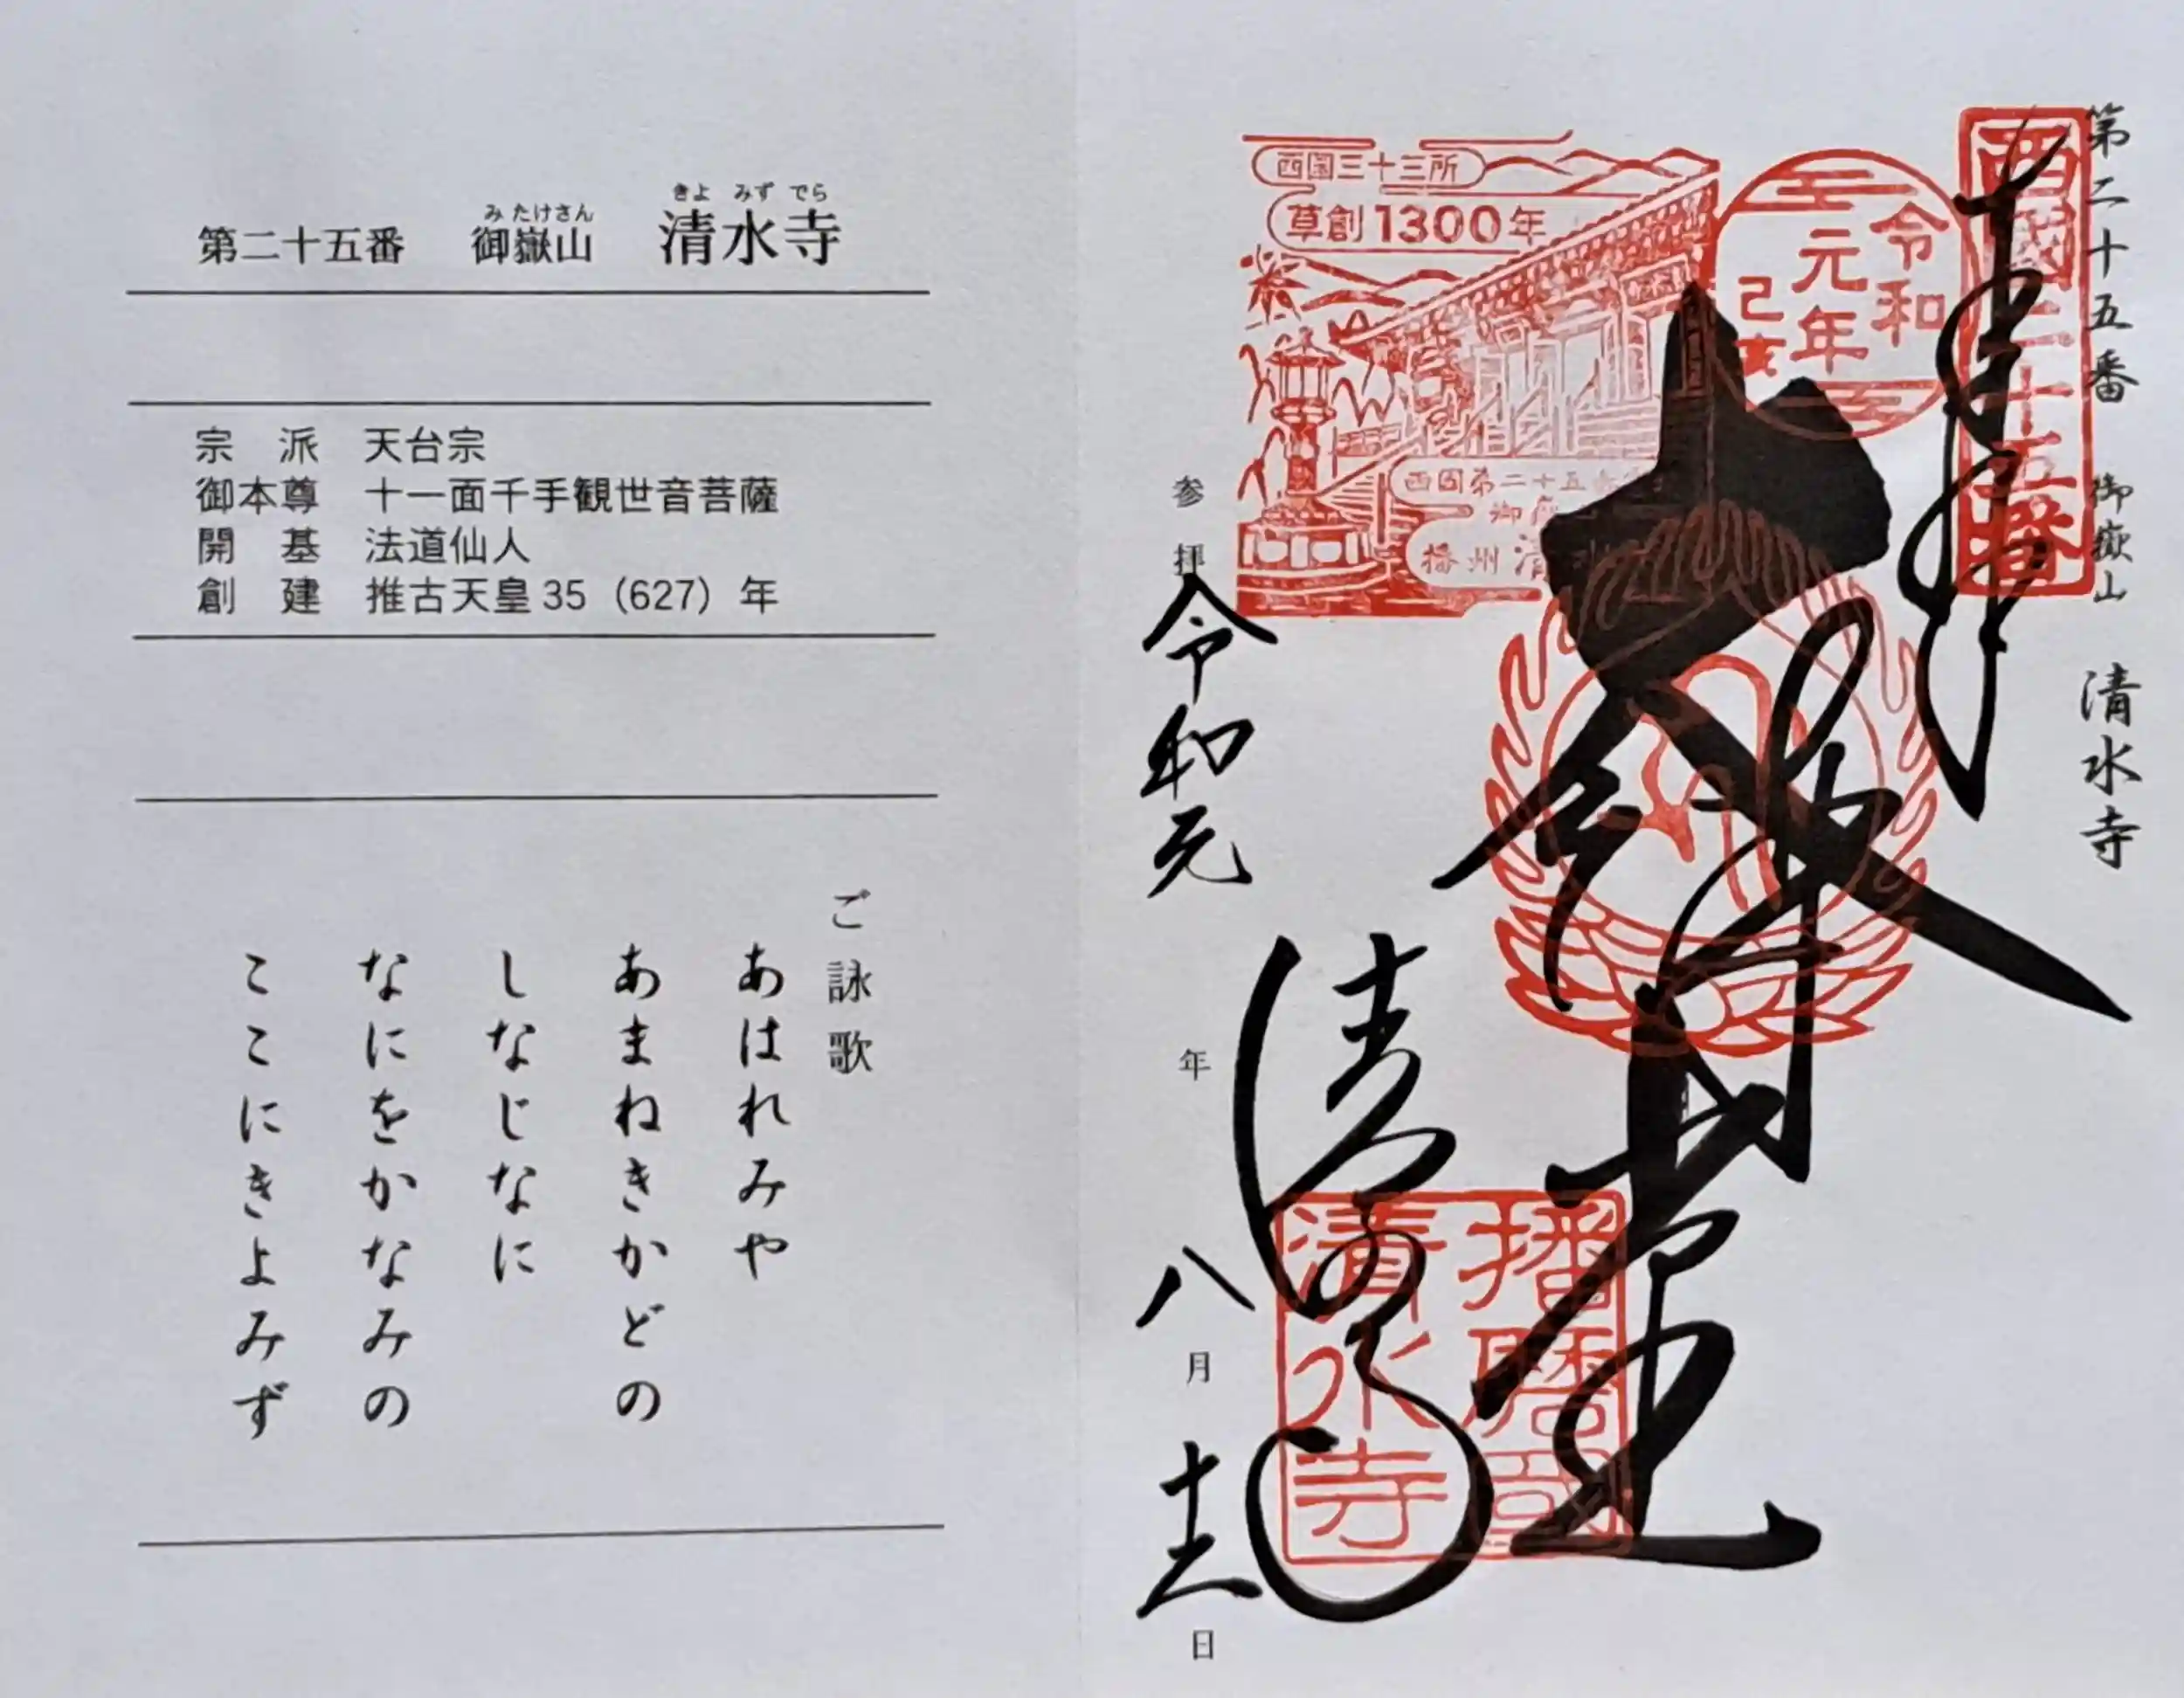 第二十五番 御嶽山 清水寺
きよ みず でら
み たけさん
宗 派 天台宗
御本尊 十一面千手観世音菩薩
開 基 法道仙人
創 建 推古天皇35（627）年
ご詠歌
あはれみや
あまねきかどの
しなじなに
なにをかなみの
ここにきよみず
第二十五番 御嶽山 清水寺
西國二十五番
奉拝
令和
元年
己亥
西国三十三所
草創1300年
西国第二十五番
御嶽
播州 清水
大悲閣
播磨國
清水寺
清水寺
参拝
令和元年
八月
日